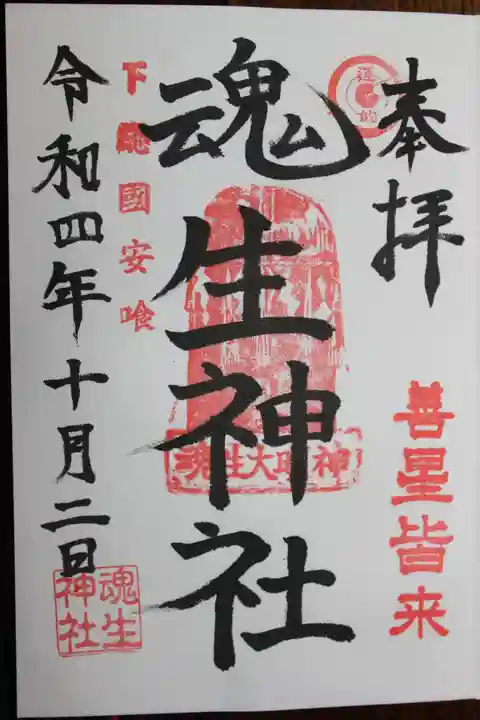 奉拝
善星皆来
魂生神社
魂生大明神
下総國安喰
令和四年十月二日
魂生
神社